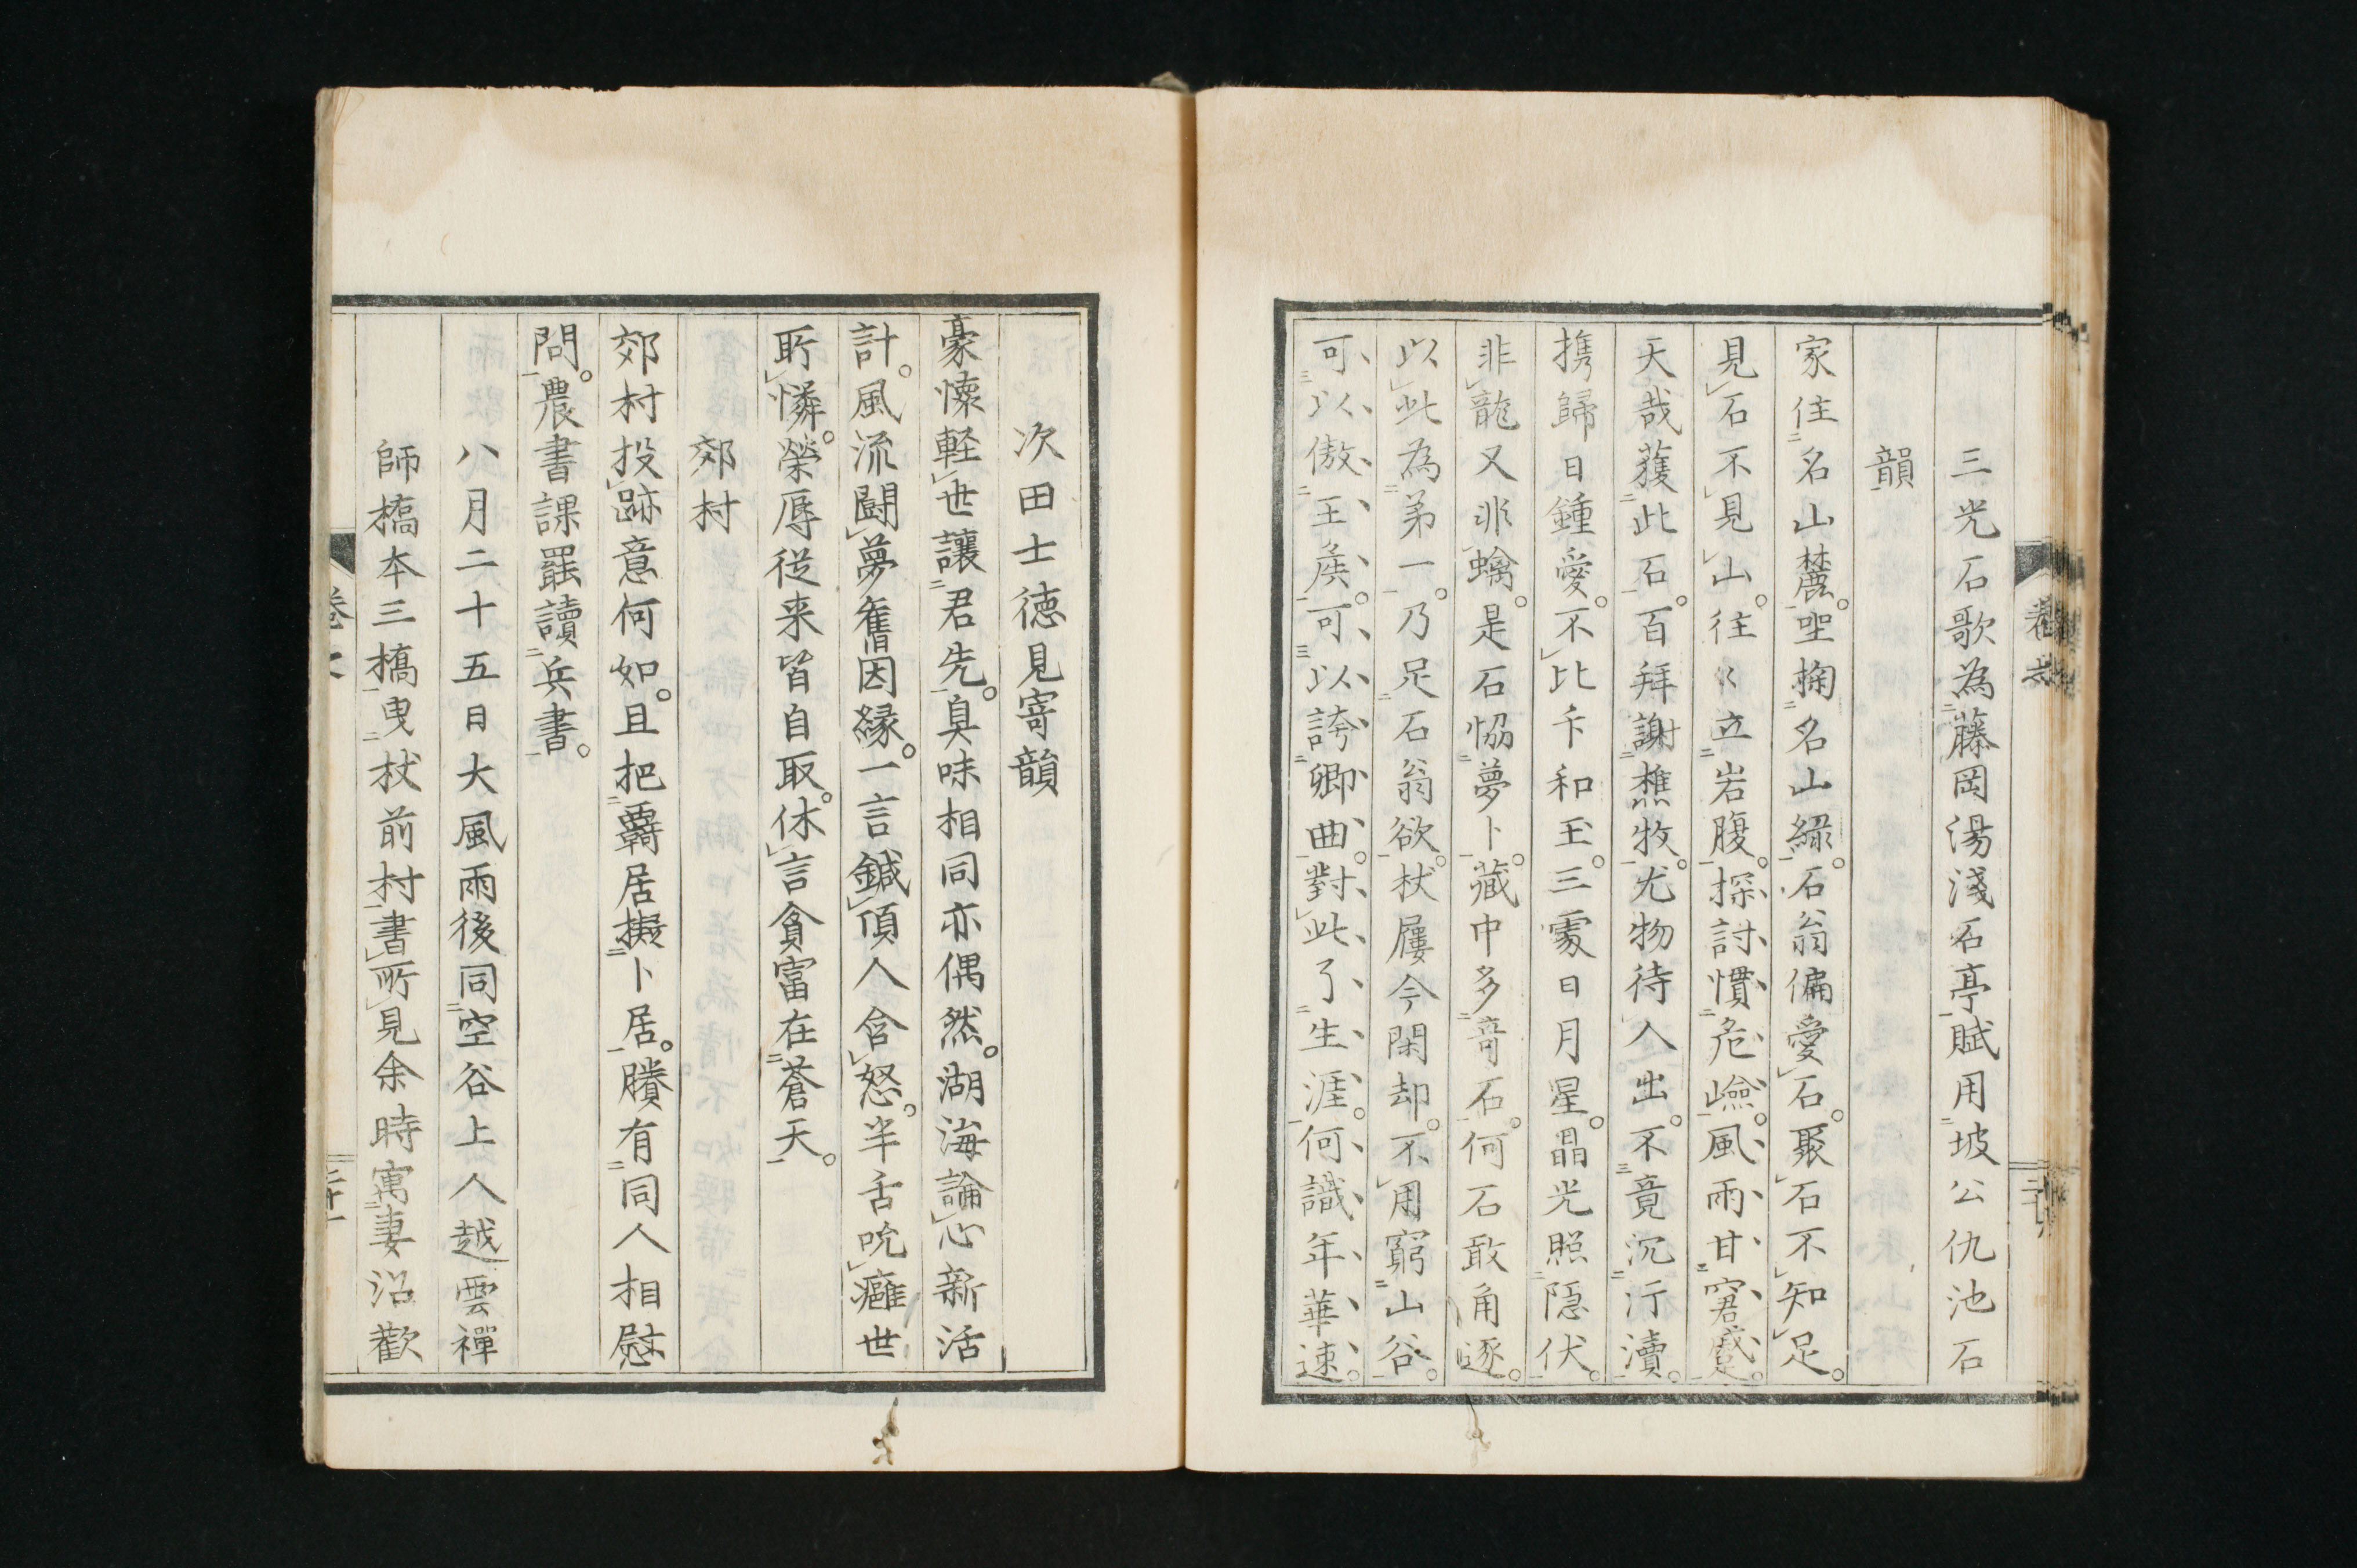 三光石歌為藤岡湯淺石亭賦用坡公仇池石
韻
家住名山麓。坐掬名山綠。石翁偏愛石。聚石不知足。
見石不見山。往〻立岩腹。探討慣危嶮。風雨甘窘蹙。
天哉獲此石。百拜謝樵牧。尤物待人出。不竟沉汙瀆。
携歸日鍾愛。不比卞和玉。三處日月星。晶光照隠伏。
非龍又非螭。是石恊夢卜。藏中多竒石。何石敢角逐。
以此為苐一。乃足石翁欲。杖屨今閑却。不用窮山谷。
可以傲王矦。可以誇卿曲。對此了生涯。何識年華速。
次田士徳見寄韻
豪懐軽世讓君先。臭味相同亦偶然。湖海論心新活
計。風流鬪夢舊因縁。一言鍼頂人含怒。半舌吮癰世
所憐。榮辱従来皆自取。休言貧富在蒼天。
郊村
郊村投跡意何如。且把覊居擬卜居。賸有同人相慰
問。農書課罷讀兵書。
八月二十五日大風雨後同空谷上人越雲禪
師橋本三橋曳杖前村書所見余時寓妻沼歡